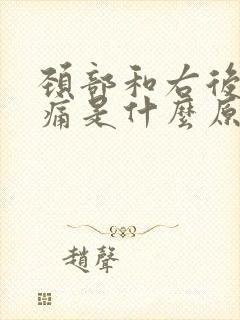 頸部和右後
痛是什麼原
趙聲